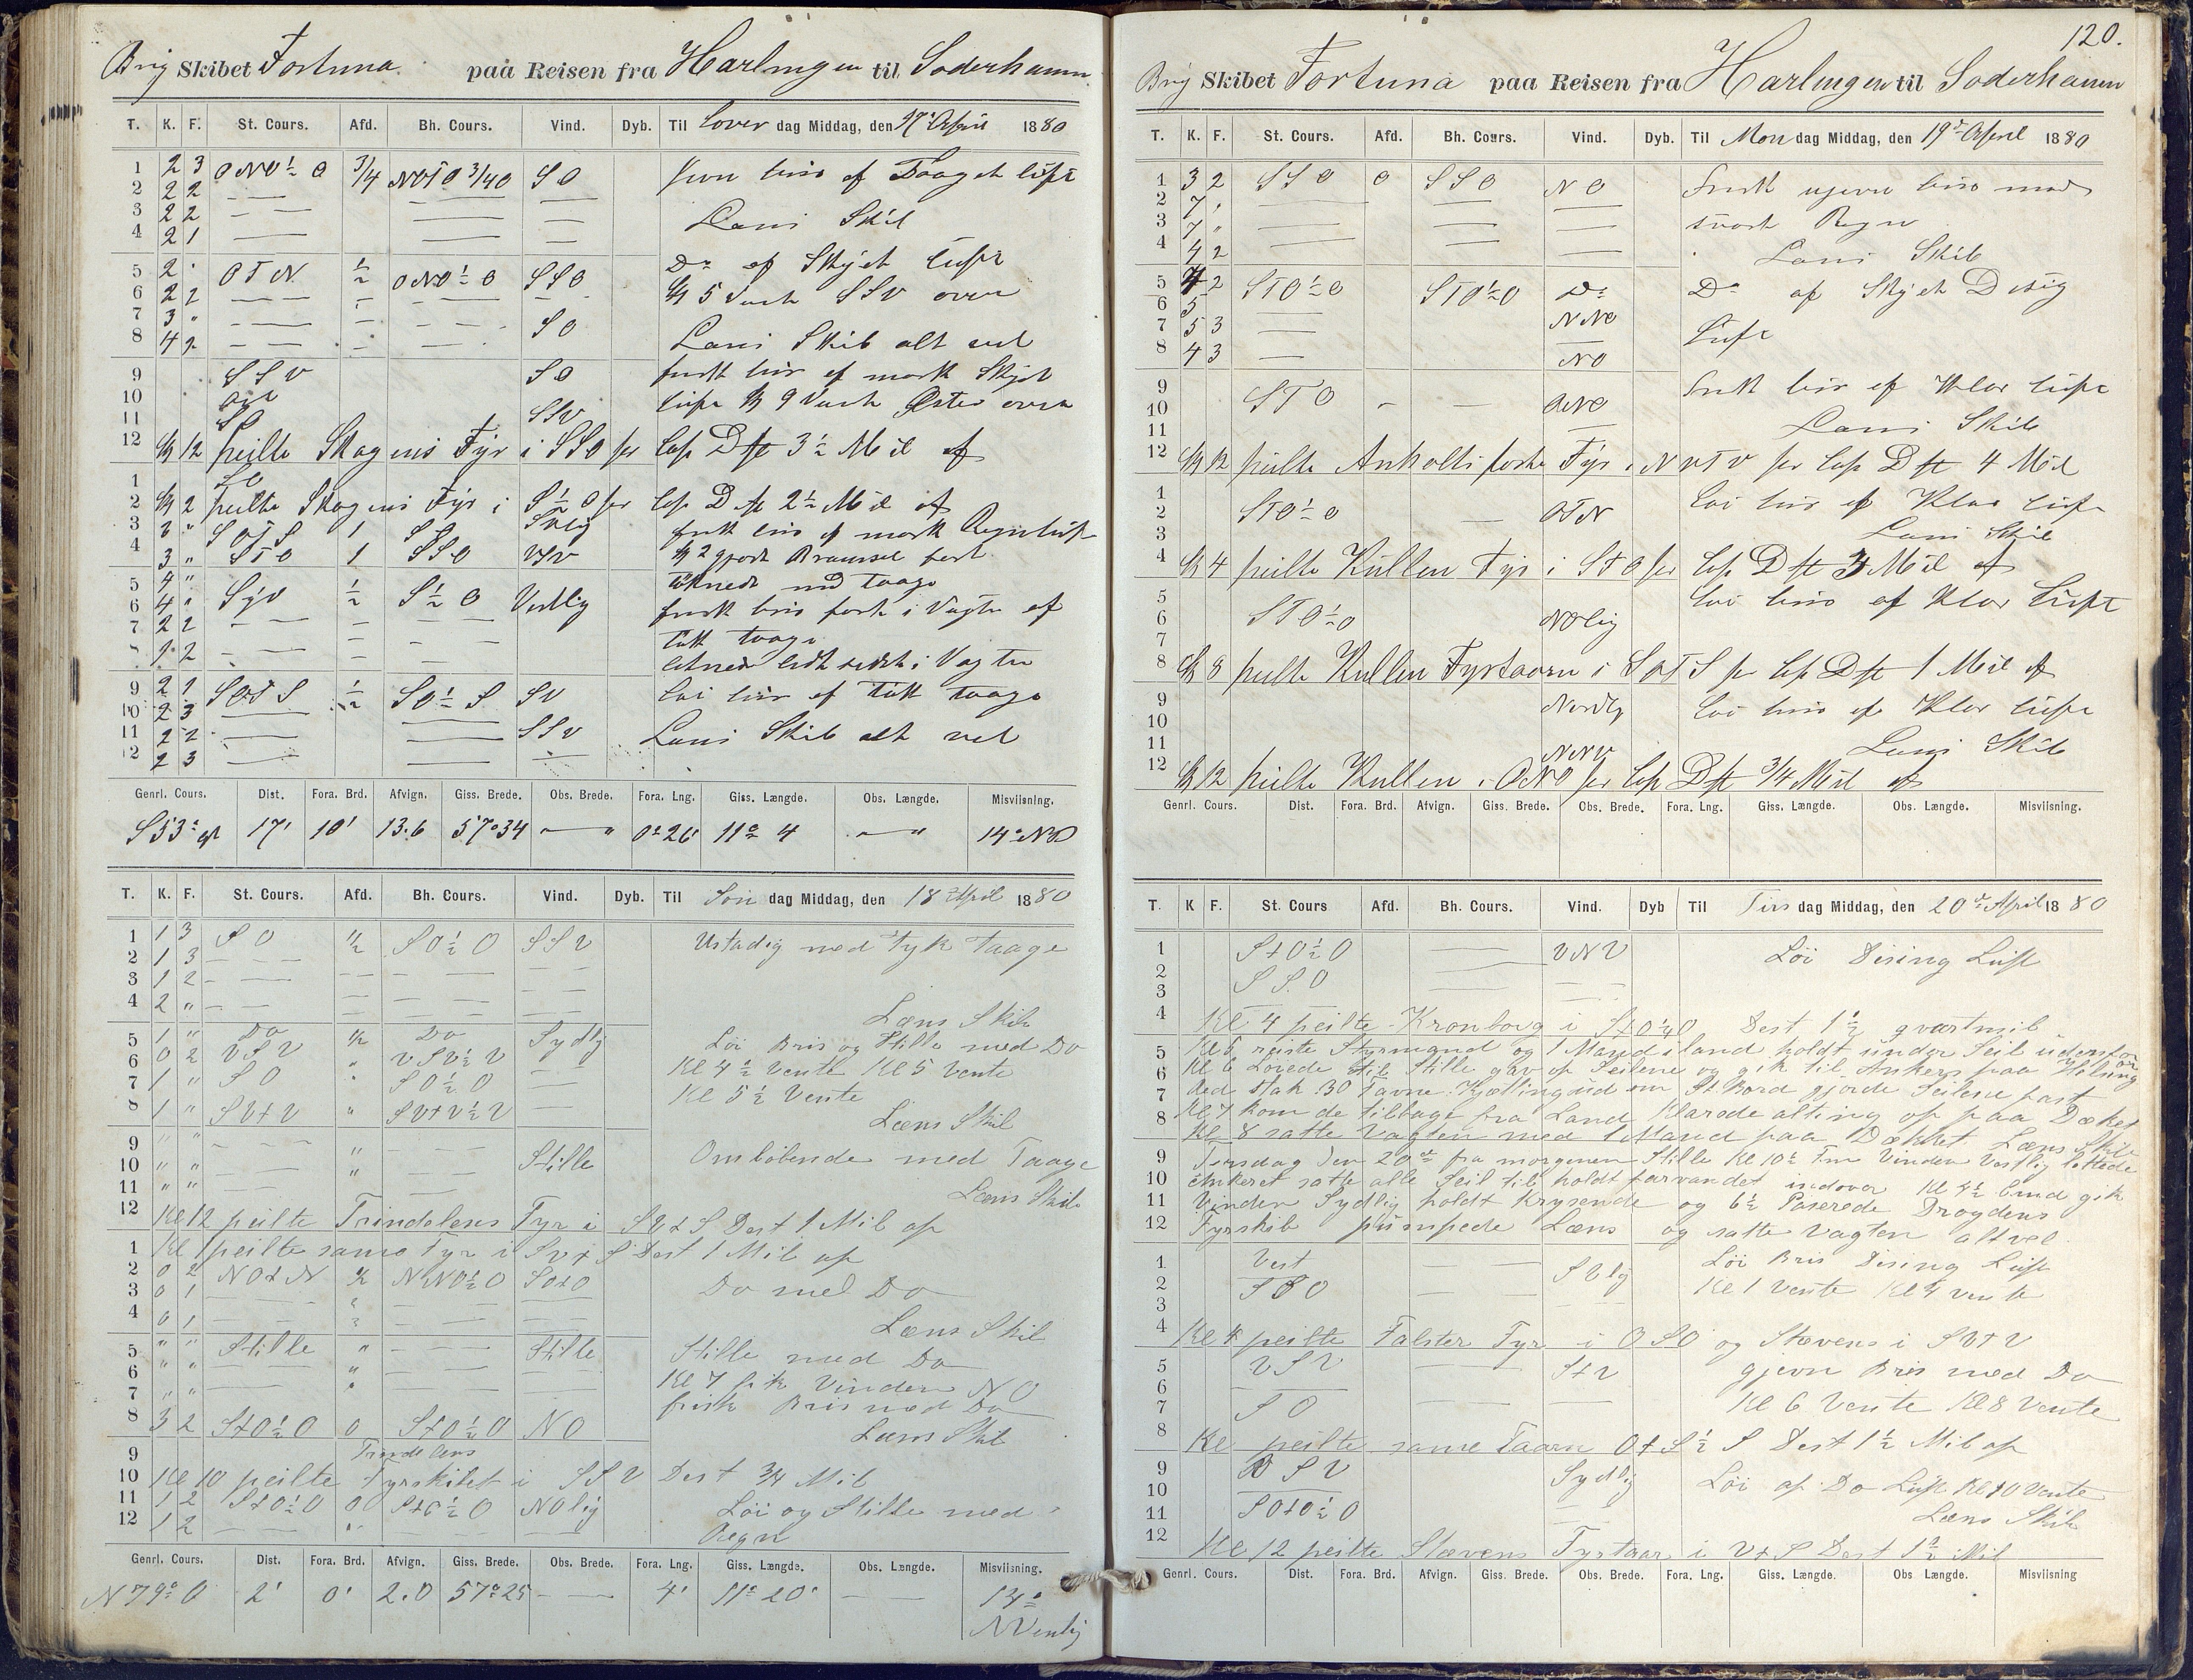 Brig Skibet Fortuna paa Reisen fra Harlingen til Soderhamn
T. K. F. St. Cours. Afd. Bh. Cours. Vind. Dyb. Til Lover dag Middag, den 17 April 1880
1 2 3 ONO½O 3/4 NOTO 3/4 O SO Jevn bris af Taaget luft
2 2 2
3 2 2 Læns Skib
4 2 1
5 2 OTN ½ ONO½O SSO Do af Skyet luft
6 2 2 Kl 5 Vendt SSV over
7 3 " SO
8 4 2 Læns Skib alt vel
9 SSV SO frisk bris af mørk Skyet
10 luft Kl 9 Vendt Øster over
11 SO SSV
12 Kl 12 peilte Skagens Fyr i SSO per Cop Dst 3½ Mil af
1 SO
2 Kl 2 peilte Skagens Fyr i S½O per Cop Dst 2½ Mil af
3 3 " SOTS 1 SO SVlig frisk bris af mørk Regnluft
4 3 " STO 1 SSO VSV Kl 2 gjorde Bramseil fast
5 4 " Syd ½ S½O Vestlig taage
6 4 " frisk bris først i Vagten af
7 2 2 tæt taage
8 1 2 lidt sidst i Vagten
9 2 1 SOTS ½ SO½S SV Løi bris af tæt taage
10 2 3
11 2 2 SSV Læns Skib alt vel
12 2 3
Genrl. Cours. Dist. Fora. Brd. Afvign. Giss. Brede. Obs. Brede. Fora. Lng. Giss. Længde. Obs. Længde. Misviisning.
S 53° O 17' 10' 13.6 57°34 — " 0°26' 11° 4 — " 14° NV
T. K. F. St. Cours. Afd. Bh. Cours. Vind. Dyb. Til Søn dag Middag, den 18 April 1880
1 1 3 SO ½ SO½O SSV Ustadig med Tyk Taage
2 1 3
3 1 2
4 2 " Læns Skib
5 1 " Do ½ Do Sydlig Löi Bris og Stille med Do
6 0 2 VSV " VSV½V Kl 4½ Vente Kl 5 Vente
7 1 " SO " SO½O Kl 5½ Vente
8 1 " SVtV " SVtV½V Læns Skib
9 " "
10 " " Stille Omløbende med Taage
11 " " Læns Skib
12 Kl 12 peilte Trindelens Fyr i SVtS Dest 1 Mil af
1 Kl 1 peilte samme Fyr i SvtS Dest 1 Mil af
2 0 2 NOtN ½ NNO½O SOtO Do med Do
3 0 1
4 0 1 Læns Skib
5 " " Stille " Stille Stille med Do
6 " " Kl 7 fik Vinden NO
7 " " frisk Bris med Do
8 3 2 StO½O 0 StO½O NO Læns Skib
9 Trindelens
10 Kl 10 peilte Fyrskibet i SSV Dest 3/4 Mil
11 1 2 StO½O 0 StO½O NOlig Löi og Stille med
12 1 2 Regn
Genrl. Cours. Dist. Fora. Brd. Afvign. Giss. Brede. Obs. Brede. Fora. Lng. Giss. Længde. Obs. Længde. Misviisning.
N 79° O 2' 0' 2.0 57°25 — — 4' 11° 20' — — 14° NVenlig
120.
Brig Skibet Fortuna paa Reisen fra Harlingen til Soderhamn
T. K. F. St. Cours. Afd. Bh. Cours. Vind. Dyb. Til Man dag Middag, den 19de April 1880
1 3 2 SSO 0 SSO NO frisk ujevn bris med
2 7 "
3 7 " svort Regn
4 4 2 Læns Skib
5 4 2 STO½O STO½O Do Do af Skyet Disig
6 5 NNO
7 5 3 luft
8 4 3 NO
9 STO — — ONO frisk bris af Klar luft
10
11 Læns Skib
12 Kl 12 peilte Anholts Fyr i NVTV per Cop Dst 4 Mil
1 Löi bris af Klar luft
2 STO½O — OTN
3 Læns Skib
4 Kl 4 peilte Kullen Fyr i StO per Cop Dst 3 Mil af
5 Löi bris af Klar Luft
6 STO½O NOlig
7
8 Kl 8 peilte Kullen Fyrtaarn i SOTS per Cop Dst 1 Mil af
9 Nordlig Löi bris af Klar luft
10
11 NNV Læns Skib
12 Kl 12 peilte Kullen i ONO per Cop Dst 3/4 Mil af
Genrl. Cours. Dist. Fora. Brd. Afvign. Giss. Brede. Obs. Brede. Fora. Lng. Giss. Længde. Obs. Længde. Misviisning.
T. K F. St. Cours Afd. Bh. Cours. Vind. Dyb Til Tirs dag Middag, den 20de April 1880
1 StO½O VNV Löi Dising Luft
2 SSO
3
4 Kl 4 peilte Kronborg i StO¼O Dest 1½ qvartmil
5 Kl 5 reiste Styrmand og 1 Mand iland holdt under Seil udenfor
6 Kl 6 Lovede Stille gav op Seilene og gik til Ankers paa Helsingør
7 Red stak 30 Favne Kjetting ud om St. Bord gjorde Seilene fast
8 Kl 7 kom de tilbage fra Land Klarede alting op paa Dækket
Kl 8 satte Vagten med 1 Mand paa Dækket Læns Skib
9 Tirsdag Den 20de fra morgenen Stille Kl 10½ Fm Vinden Vestlig lettede
10 Ankeret satte alle Seil til holdt farvandet indover Kl 4½ gik
11 Vinden Sydlig holdt Krysende og 6½ Paserede Drogdens
12 Fyrskib pumpede Læns og satte Vagten alt vel
1 Vest SVlig Löi Bris Dising Luft
2 SSO Kl 1 Vente Kl 4 vente
3
4 Kl 4 peilte Falster Fyr i OSO og Stevens i SVtV
5 VSV StV gjevn Bris med Do
6
7 SO Kl 6 Vente Kl 8 Vente
8 Kl peilte same Taarn OtS½S Dest 1½ Mil af
9 VSV Sydlig Löi af Do Luft Kl 10 Vente
10
11 SOtO½O Læns Skib
12 Kl 12 peilte Stevens Fyrtaar i VtS Dest 1½ Mil
Genrl. Cours. Dist. Fora. Brd. Afvign. Giss. Brede. Obs. Brede. Fora. Lng. Giss. Længde. Obs Længde. Misviisning